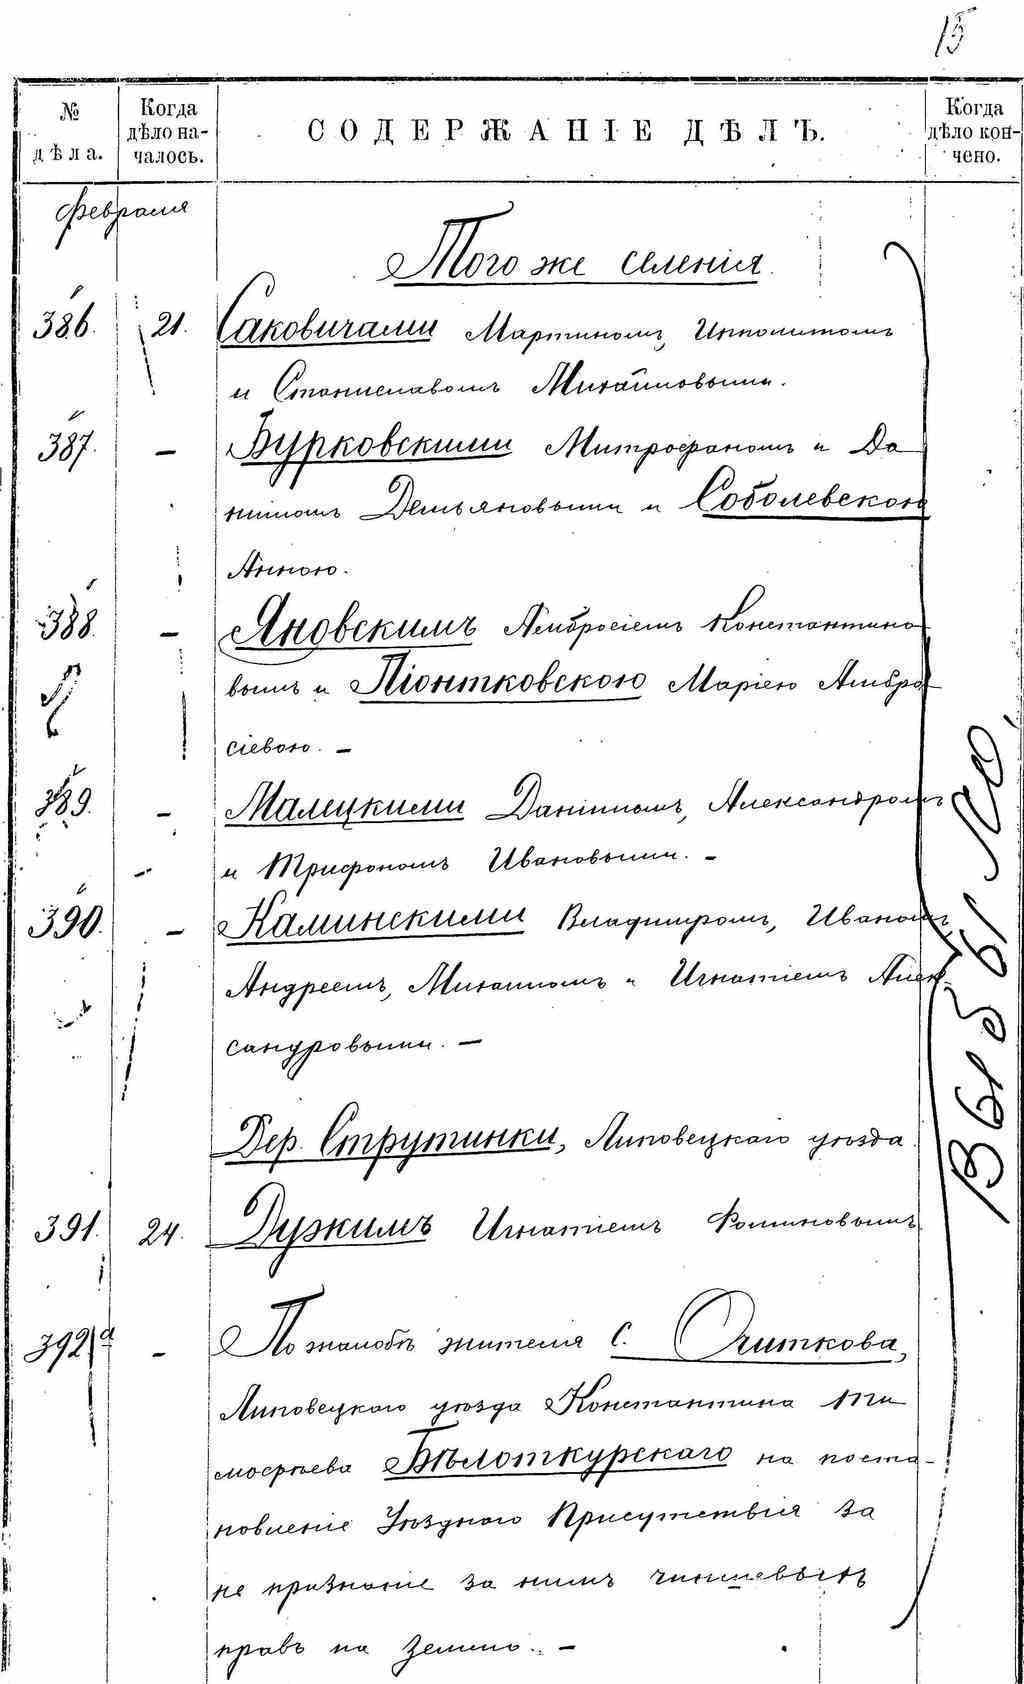 15
№ дѣла.
Когда дѣло на-чалось.
СОДЕРЖАНІЕ ДѢЛЪ.
Когда дѣло кон-чено.
февраля
Того же селенія.
386. 21. Саковичами Мартиномъ, Иполитомъ
и Станиславомъ Михайловыми.
387. — Бурковскими Митрофаномъ и Да
ниломъ Демьяновыми и Соболевскою
Анною.
388. — Яновскимъ Амвросіемъ Константино
вымъ и Піонтковскою Маріею Амвро
сіевою. —
389. — Малецкими Даніиломъ, Александромъ
и Трифономъ Ивановыми. —
390. — Каминскими Владиміромъ, Иваномъ,
Андреемъ, Михаиломъ и Игнатіемъ Алек-
сандровыми. —
Дер. Струтинки, Липовецкаго уѣзда.
391. 24. Дужимъ Игнатіемъ Фоминовымъ
392 — По жалобѣ жителя с. Очиткова,
Липовецкаго уѣзда Константина Ти
мофѣева Бѣлоткурскаго на поста-
новленіе Уѣзднаго Присутствія за
не признаніе за нимъ чиншевыхъ
правъ на землю. —
ВЫБЫЛО